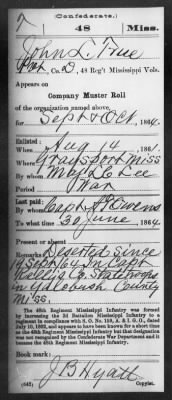 (Confederate.)
T 48 Miss.
John L. True
Pvt, Co. D, 48 Reg't Mississippi Vols.
Appears on
Company Muster Roll
of the organization named above,
for Sept & Oct, 1864.
Enlisted:
When Aug 14, 186
Where Graysport Miss
By whom Maj L. C. Lee
Period War
Last paid:
By whom Capt Owens
To what time 30 June, 1864.
Present or absent
Remarks: Deserted since
in Capt
Co. State troops
in Yalobush County
Miss.
The 48th Regiment Mississippi Infantry was formed by
increasing the 2d Battalion Mississippi Infantry to
a regiment in compliance with S. O. No. 159, A. & I. G. O., dated
and appears to have been known for a short time
as the 49th Regiment Mississippi Infantry but that designation
was not recognized by the Confederate War Department and it
became the 48th Regiment Mississippi Infantry.
Book mark:
(642) J B Hyatt
Copyist.